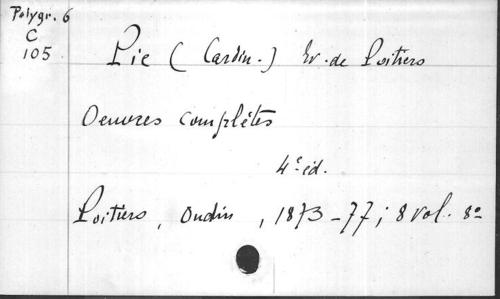 Polygr. 6
C
105
Pie (Cardin.) Ev. de Poitiers
Oeuvres complètes
4e éd.
Poitiers, Oudin, 1873-77; 8 vol. 8o